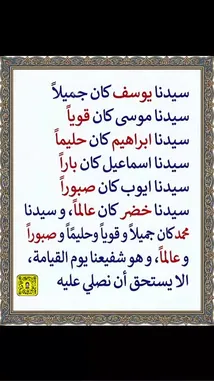 سيدنا يوسف كان جميلاً
سيدنا موسى كان قوياً
سيدنا ابراهيم كان حليماً
سيدنا اسماعيل كان باراً
سيدنا ايوب كان صبوراً
سيدنا خضر كان عالماً، و سيدنا
محمد كان جميلاً و قوياً وحليماً و صبوراً
و عالماً، و هو شفيعنا يوم القيامة،
الا يستحق أن نصلي عليه